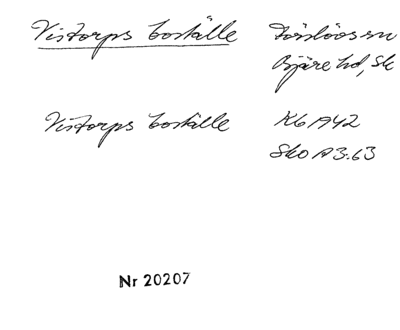 Vistorps boställe
Förslövs sn
Bjäre hd, Sk
Vistorps boställe
K6 A42
Sko A3:63
Nr 20207